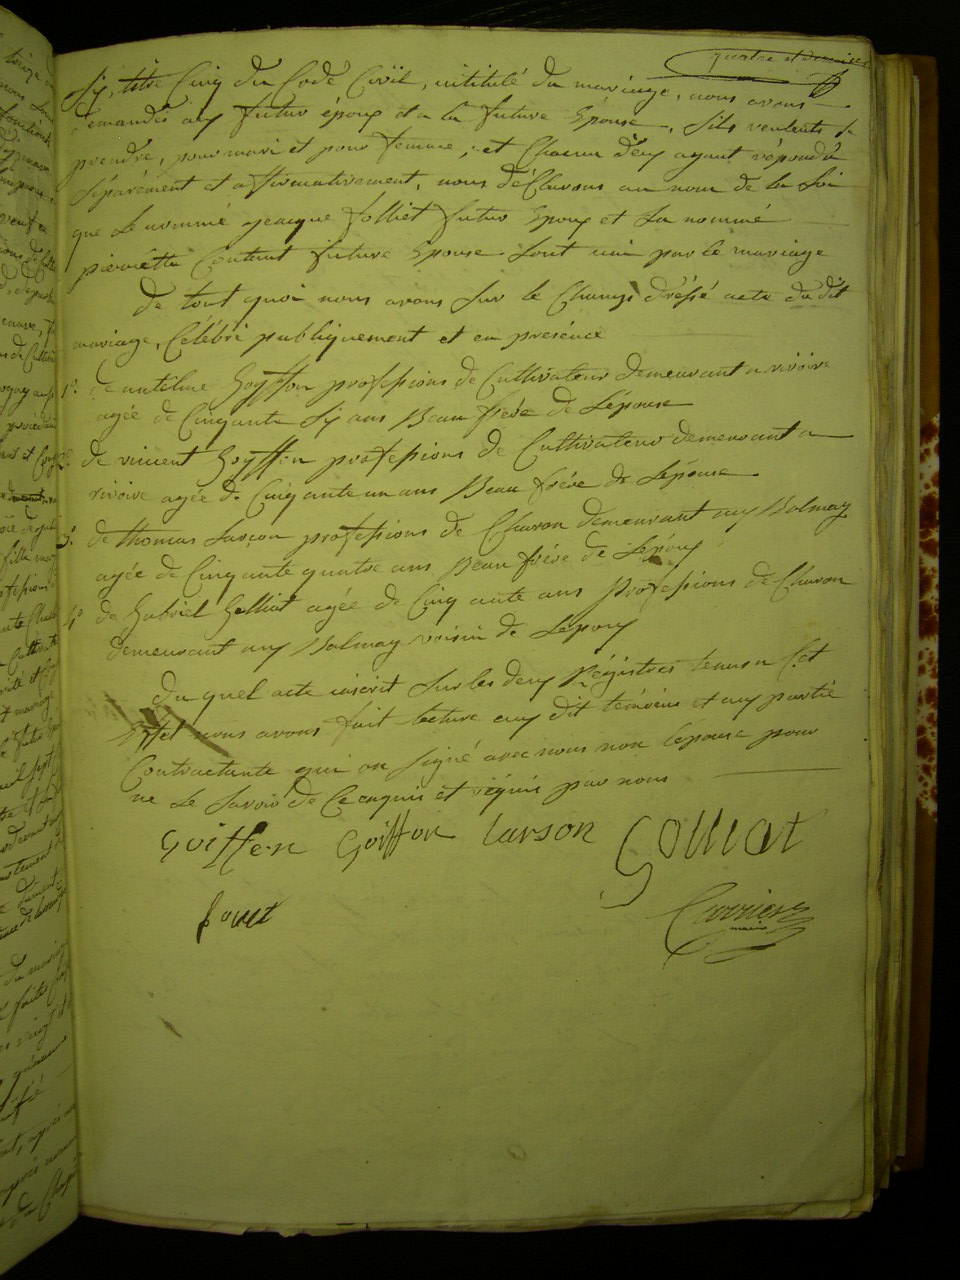 quatre et dernier
Six, titre Cinq du Code Civil, intitulé du mariage, nous avons
demandés aux futur époux et a la future Epouse, sils veulents se
prendre, pour mari et pour femme, et Chacun d'eux ayant répondû
Séparément et affirmativement, nous déClarons au nom de la Loi
que Le nommé jeacque folliet futur Epoux et La nommé
pierrette Contant future Epouse Sont uni par le mariage
De tout quoi nous avons Sur le Champs dréssé acte du dit
mariage, Célébré publiquement et en présence
1° d'antelme Goyffon profession de Cultivateur demeurant a rivoire
agée de Cinquante Six ans Beau frére de L'épouse
de vincent Goyffon profession de Cultivateur demeurant a
rivoire agée de Cinquante un ans Beau frére de Lépouse
3° de thomas Larçon profession de Charon demeurant aux Balmay
agée de Cinquante quatre ans Beau frére de Lépoux
4° de Gabriel Golliat agée de Cinquante ans Profession de Charon
demeurant aux Balmay voisin de Lépoux
Du quel acte inscrit Sur les deux Régistres tenus a Cet
Effet nous avons fait lecture aux dit témoins et aux partie
Contractante qui on Signé avec nous non Lépouse pour
ne Le Savoir de Ce enquis et réquis par nous
Goiffon Goiffon Larson Golliat
Carrier
maire